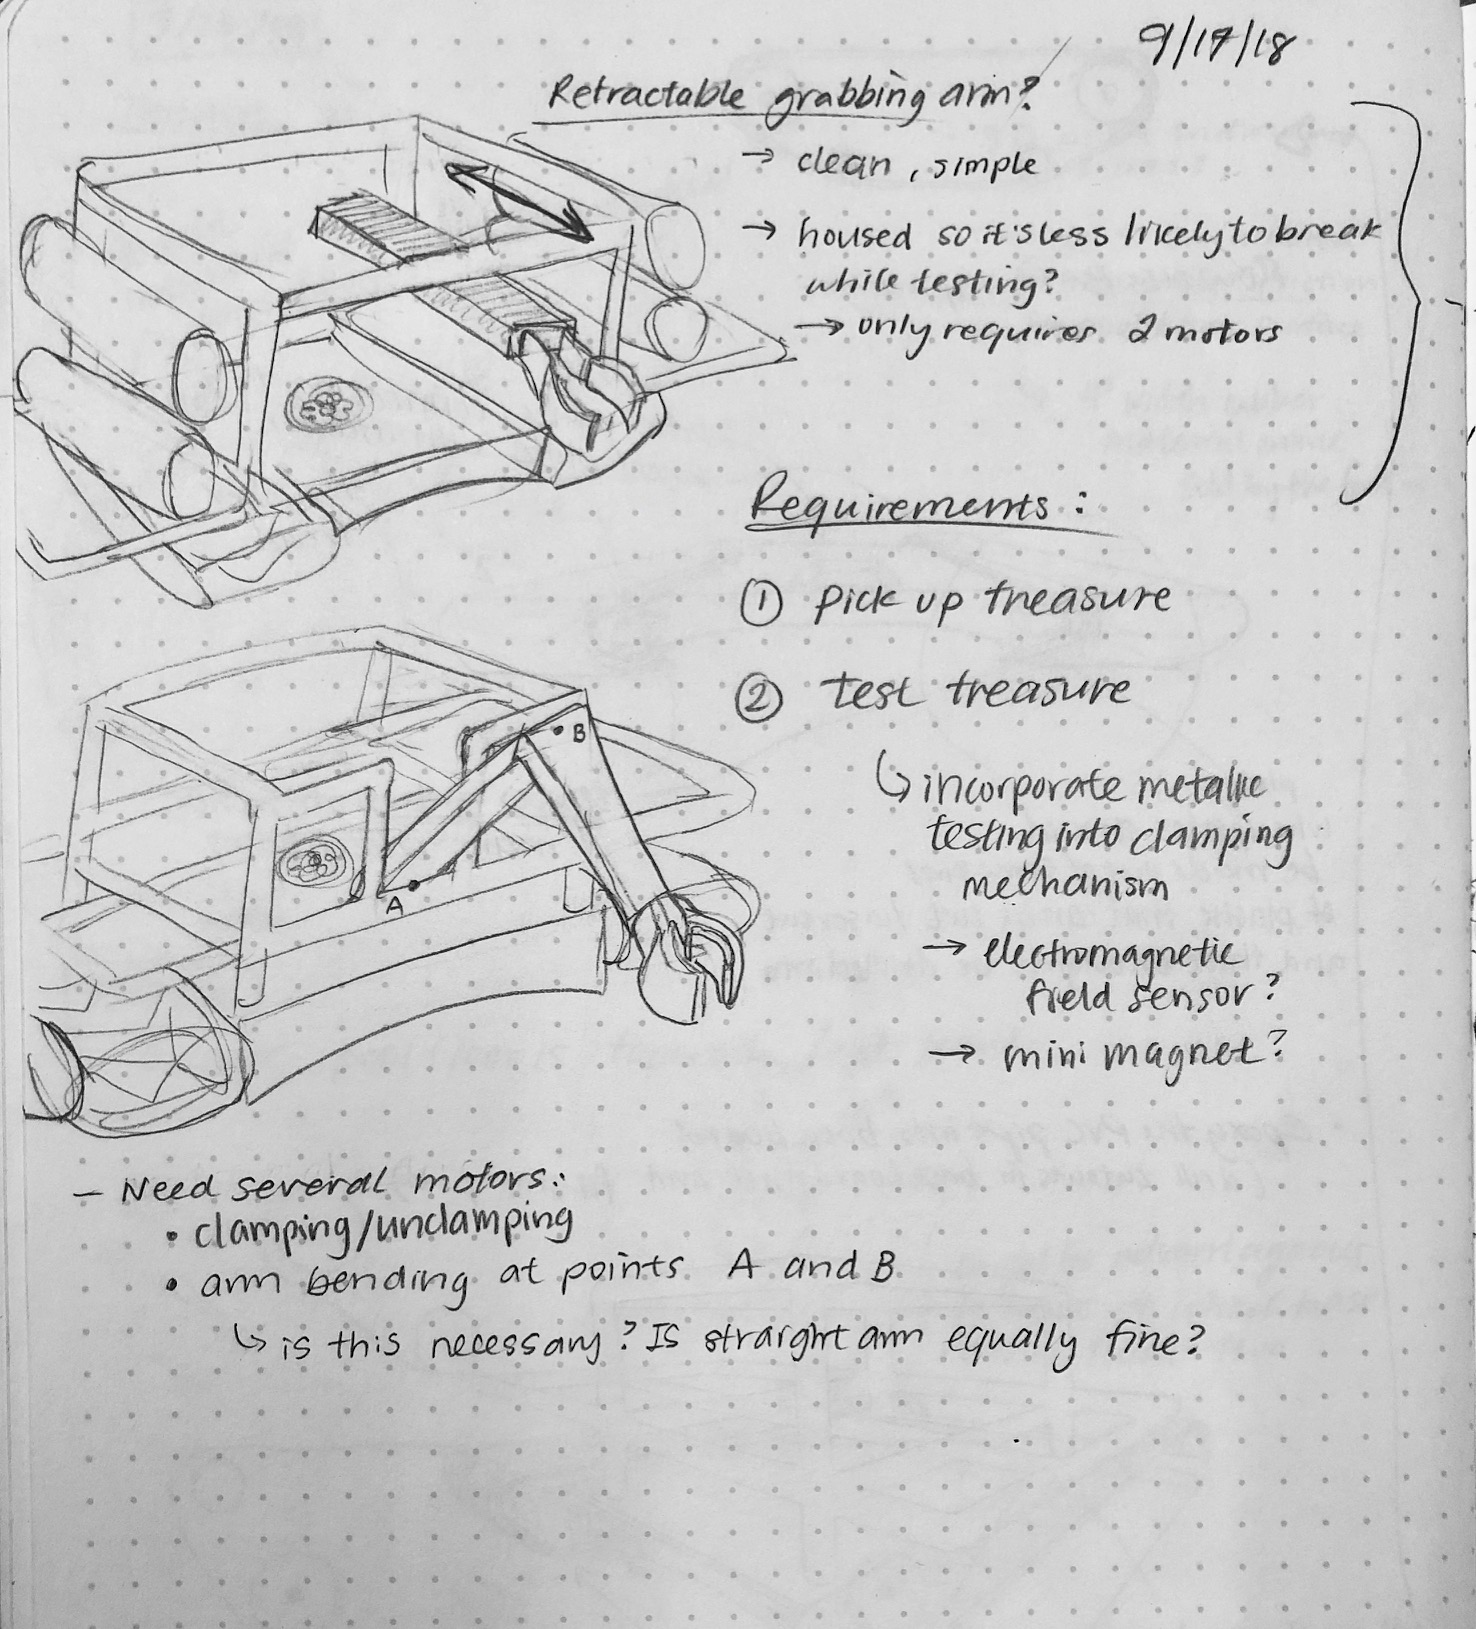 9/17/18
Retractable grabbing arm?
→ clean, simple
→ housed so it's less likely to break
while testing?
→ only requires 2 motors
Requirements:
① pick up treasure
② test treasure
↳ incorporate metallic
testing into clamping
mechanism
→ electromagnetic
field sensor?
→ mini magnet?
B
A
– Need several motors:
• clamping/unclamping
• arm bending at points A and B
↳ is this necessary? Is straight arm equally fine?